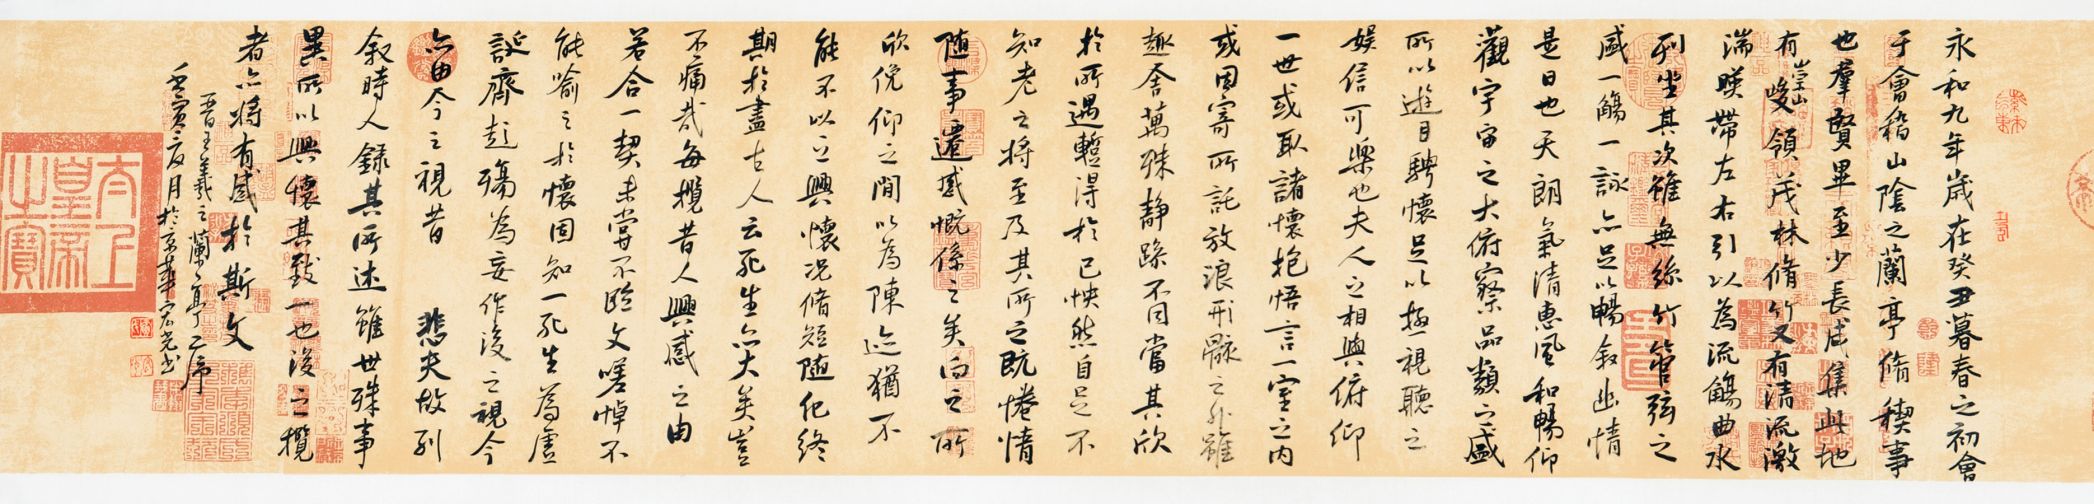 永和九年歲在癸丑暮春之初會
于會稽山陰之蘭亭脩稧事
也羣賢畢至少長咸集此地
有崇山峻領茂林脩竹又有清流激
湍暎帶左右引以為流觴曲水
列坐其次雖無絲竹管弦之
盛一觴一詠亦足以暢叙幽情
是日也天朗氣清惠風和暢仰
觀宇宙之大俯察品類之盛
所以遊目騁懷足以極視聽之
娛信可樂也夫人之相與俯仰
一世或取諸懷抱悟言一室之內
或因寄所託放浪形骸之外雖
趣舍萬殊靜躁不同當其欣
於所遇蹔得於己怏然自足不
知老之將至及其所之既惓情
隨事遷感慨係之矣向之所
欣俛仰之閒以為陳迹猶不
能不以之興懷況脩短隨化終
期於盡古人云死生亦大矣豈
不痛哉每攬昔人興感之由
若合一契未嘗不臨文嗟悼不
能喻之於懷固知一死生為虛
誕齊彭殤為妄作後之視今
亦由今之視昔 悲夫故列
叙時人錄其所述雖世殊事
異所以興懷其致一也後之攬
者亦將有感於斯文
晋王羲之蘭亭之序
壬寅之夏月於京華宏光書
太上皇帝之寶